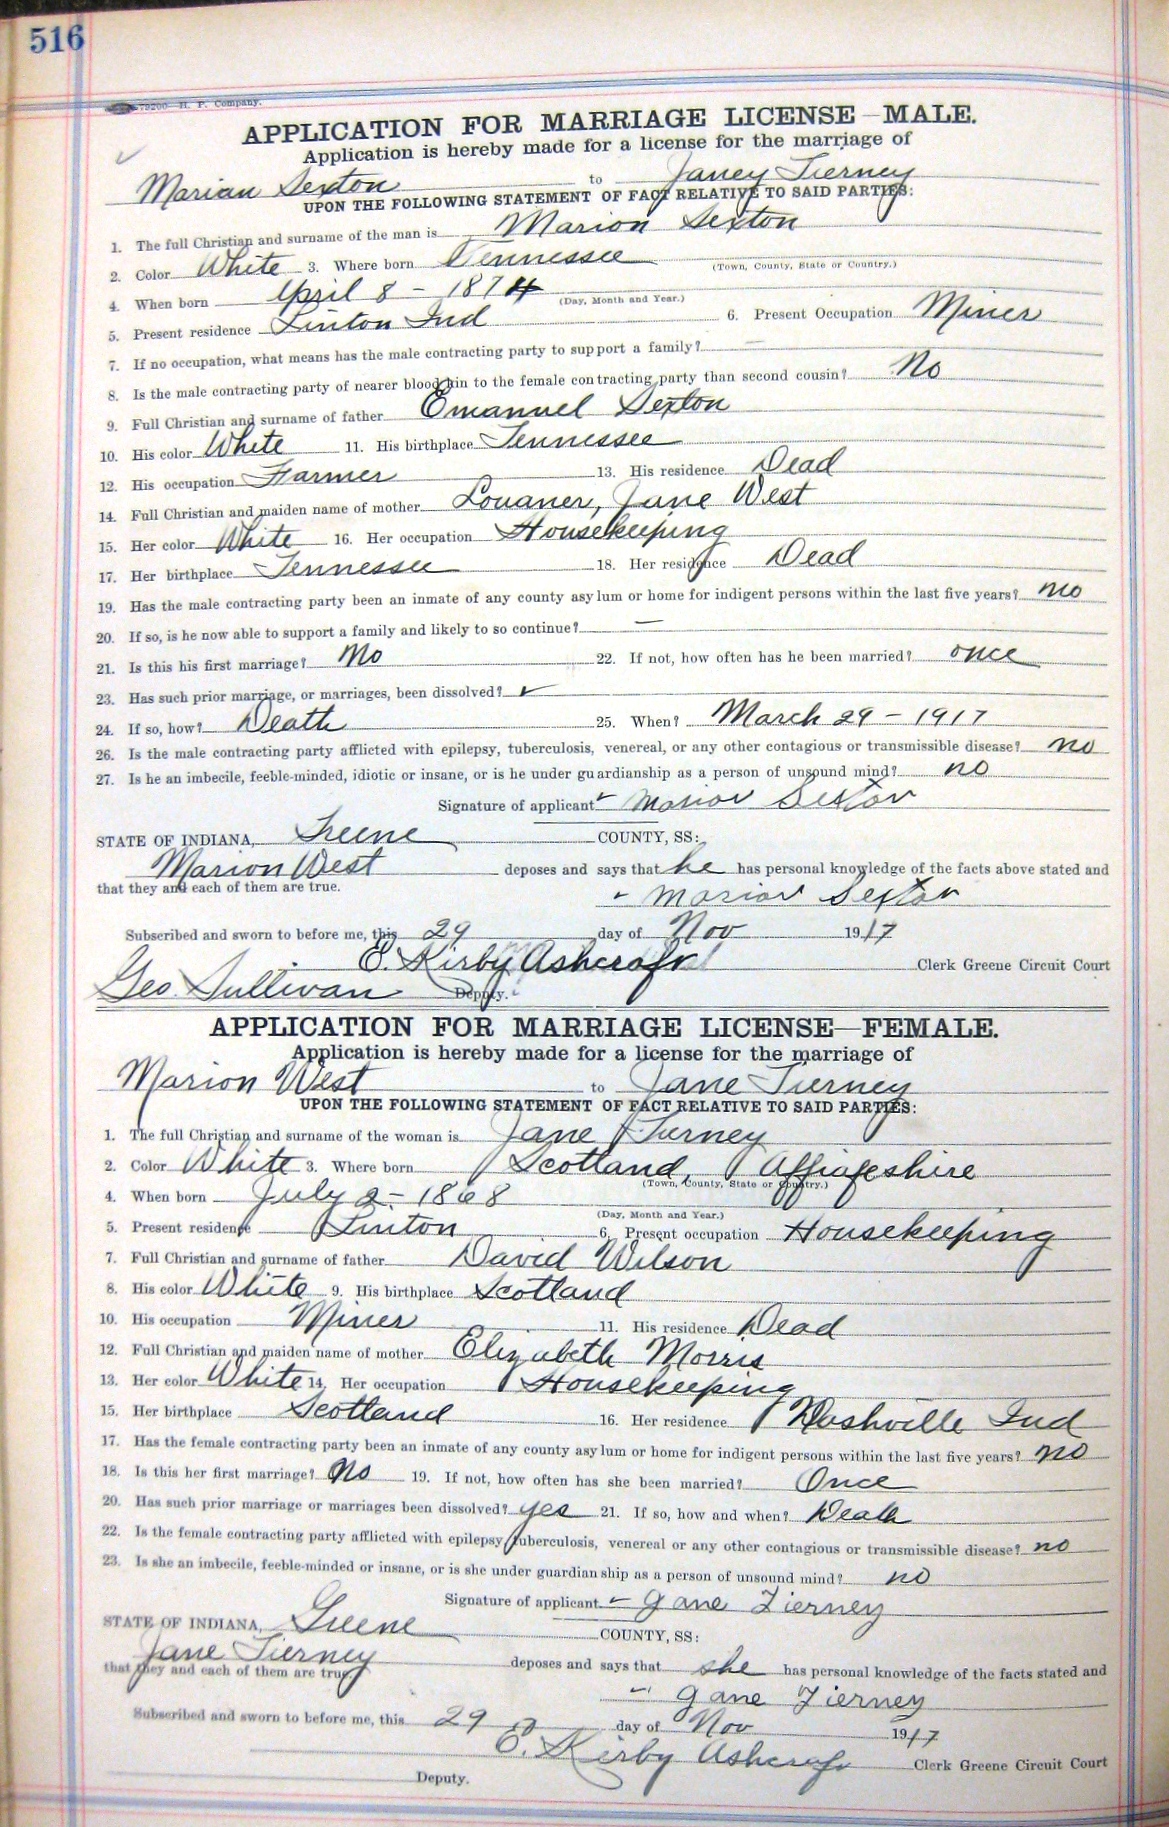 516
79200—H. P. Company.
APPLICATION FOR MARRIAGE LICENSE—MALE.
Application is hereby made for a license for the marriage of
Marian Sexton to Janey Tierney
UPON THE FOLLOWING STATEMENT OF FACT RELATIVE TO SAID PARTIES:
1. The full Christian and surname of the man is Marion Sexton
2. Color White 3. Where born Tennessee
(Town, County, State or Country.)
4. When born April 8 - 1874
(Day, Month and Year.)
5. Present residence Linton Ind 6. Present Occupation Miner
7. If no occupation, what means has the male contracting party to support a family? —
8. Is the male contracting party of nearer blood kin to the female contracting party than second cousin? No
9. Full Christian and surname of father Emanuel Sexton
10. His color White 11. His birthplace Tennessee
12. His occupation Farmer 13. His residence Dead
14. Full Christian and maiden name of mother Louaner, Jane West
15. Her color White 16. Her occupation Housekeeping
17. Her birthplace Tennessee 18. Her residence Dead
19. Has the male contracting party been an inmate of any county asylum or home for indigent persons within the last five years? no
20. If so, is he now able to support a family and likely to so continue? —
21. Is this his first marriage? No 22. If not, how often has he been married? once
23. Has such prior marriage, or marriages, been dissolved? ✓
24. If so, how? Death 25. When? March 29 - 1917
26. Is the male contracting party afflicted with epilepsy, tuberculosis, venereal, or any other contagious or transmissible disease? no
27. Is he an imbecile, feeble-minded, idiotic or insane, or is he under guardianship as a person of unsound mind? no
Signature of applicant Marion Sexton
STATE OF INDIANA, Greene COUNTY, SS:
Marion West deposes and says that he has personal knowledge of the facts above stated and
that they and each of them are true.
Marion Sexton
Subscribed and sworn to before me, this 29 day of Nov 1917
E. Kirby Ashcraft Clerk Greene Circuit Court
Geo. Sullivan Deputy.
APPLICATION FOR MARRIAGE LICENSE—FEMALE.
Application is hereby made for a license for the marriage of
Marion West to Jane Tierney
UPON THE FOLLOWING STATEMENT OF FACT RELATIVE TO SAID PARTIES:
1. The full Christian and surname of the woman is Jane Tierney
2. Color White 3. Where born Scotland,
(Town, County, State or Country.)
4. When born July 2 - 1868
(Day, Month and Year.)
5. Present residence Linton 6. Present occupation Housekeeping
7. Full Christian and surname of father David Wilson
8. His color White 9. His birthplace Scotland
10. His occupation Miner 11. His residence Dead
12. Full Christian and maiden name of mother Elizabeth Morris
13. Her color White 14. Her occupation Housekeeping
15. Her birthplace Scotland 16. Her residence Nashville Ind
17. Has the female contracting party been an inmate of any county asylum or home for indigent persons within the last five years? no
18. Is this her first marriage? No 19. If not, how often has she been married? Once
20. Has such prior marriage or marriages been dissolved? yes 21. If so, how and when? Death
22. Is the female contracting party afflicted with epilepsy, tuberculosis, venereal or any other contagious or transmissible disease? no
23. Is she an imbecile, feeble-minded or insane, or is she under guardianship as a person of unsound mind? no
Signature of applicant Jane Tierney
STATE OF INDIANA, Greene COUNTY, SS:
Jane Tierney deposes and says that she has personal knowledge of the facts stated and
that they and each of them are true.
Jane Tierney
Subscribed and sworn to before me, this 29 day of Nov 1917
E. Kirby Ashcraft Clerk Greene Circuit Court
Deputy.